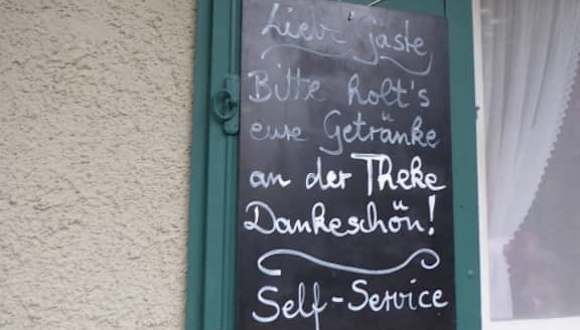 Liebe Gäste
Bitte holt's
eure Getränke
an der Theke
Dankeschön!
Self-Service